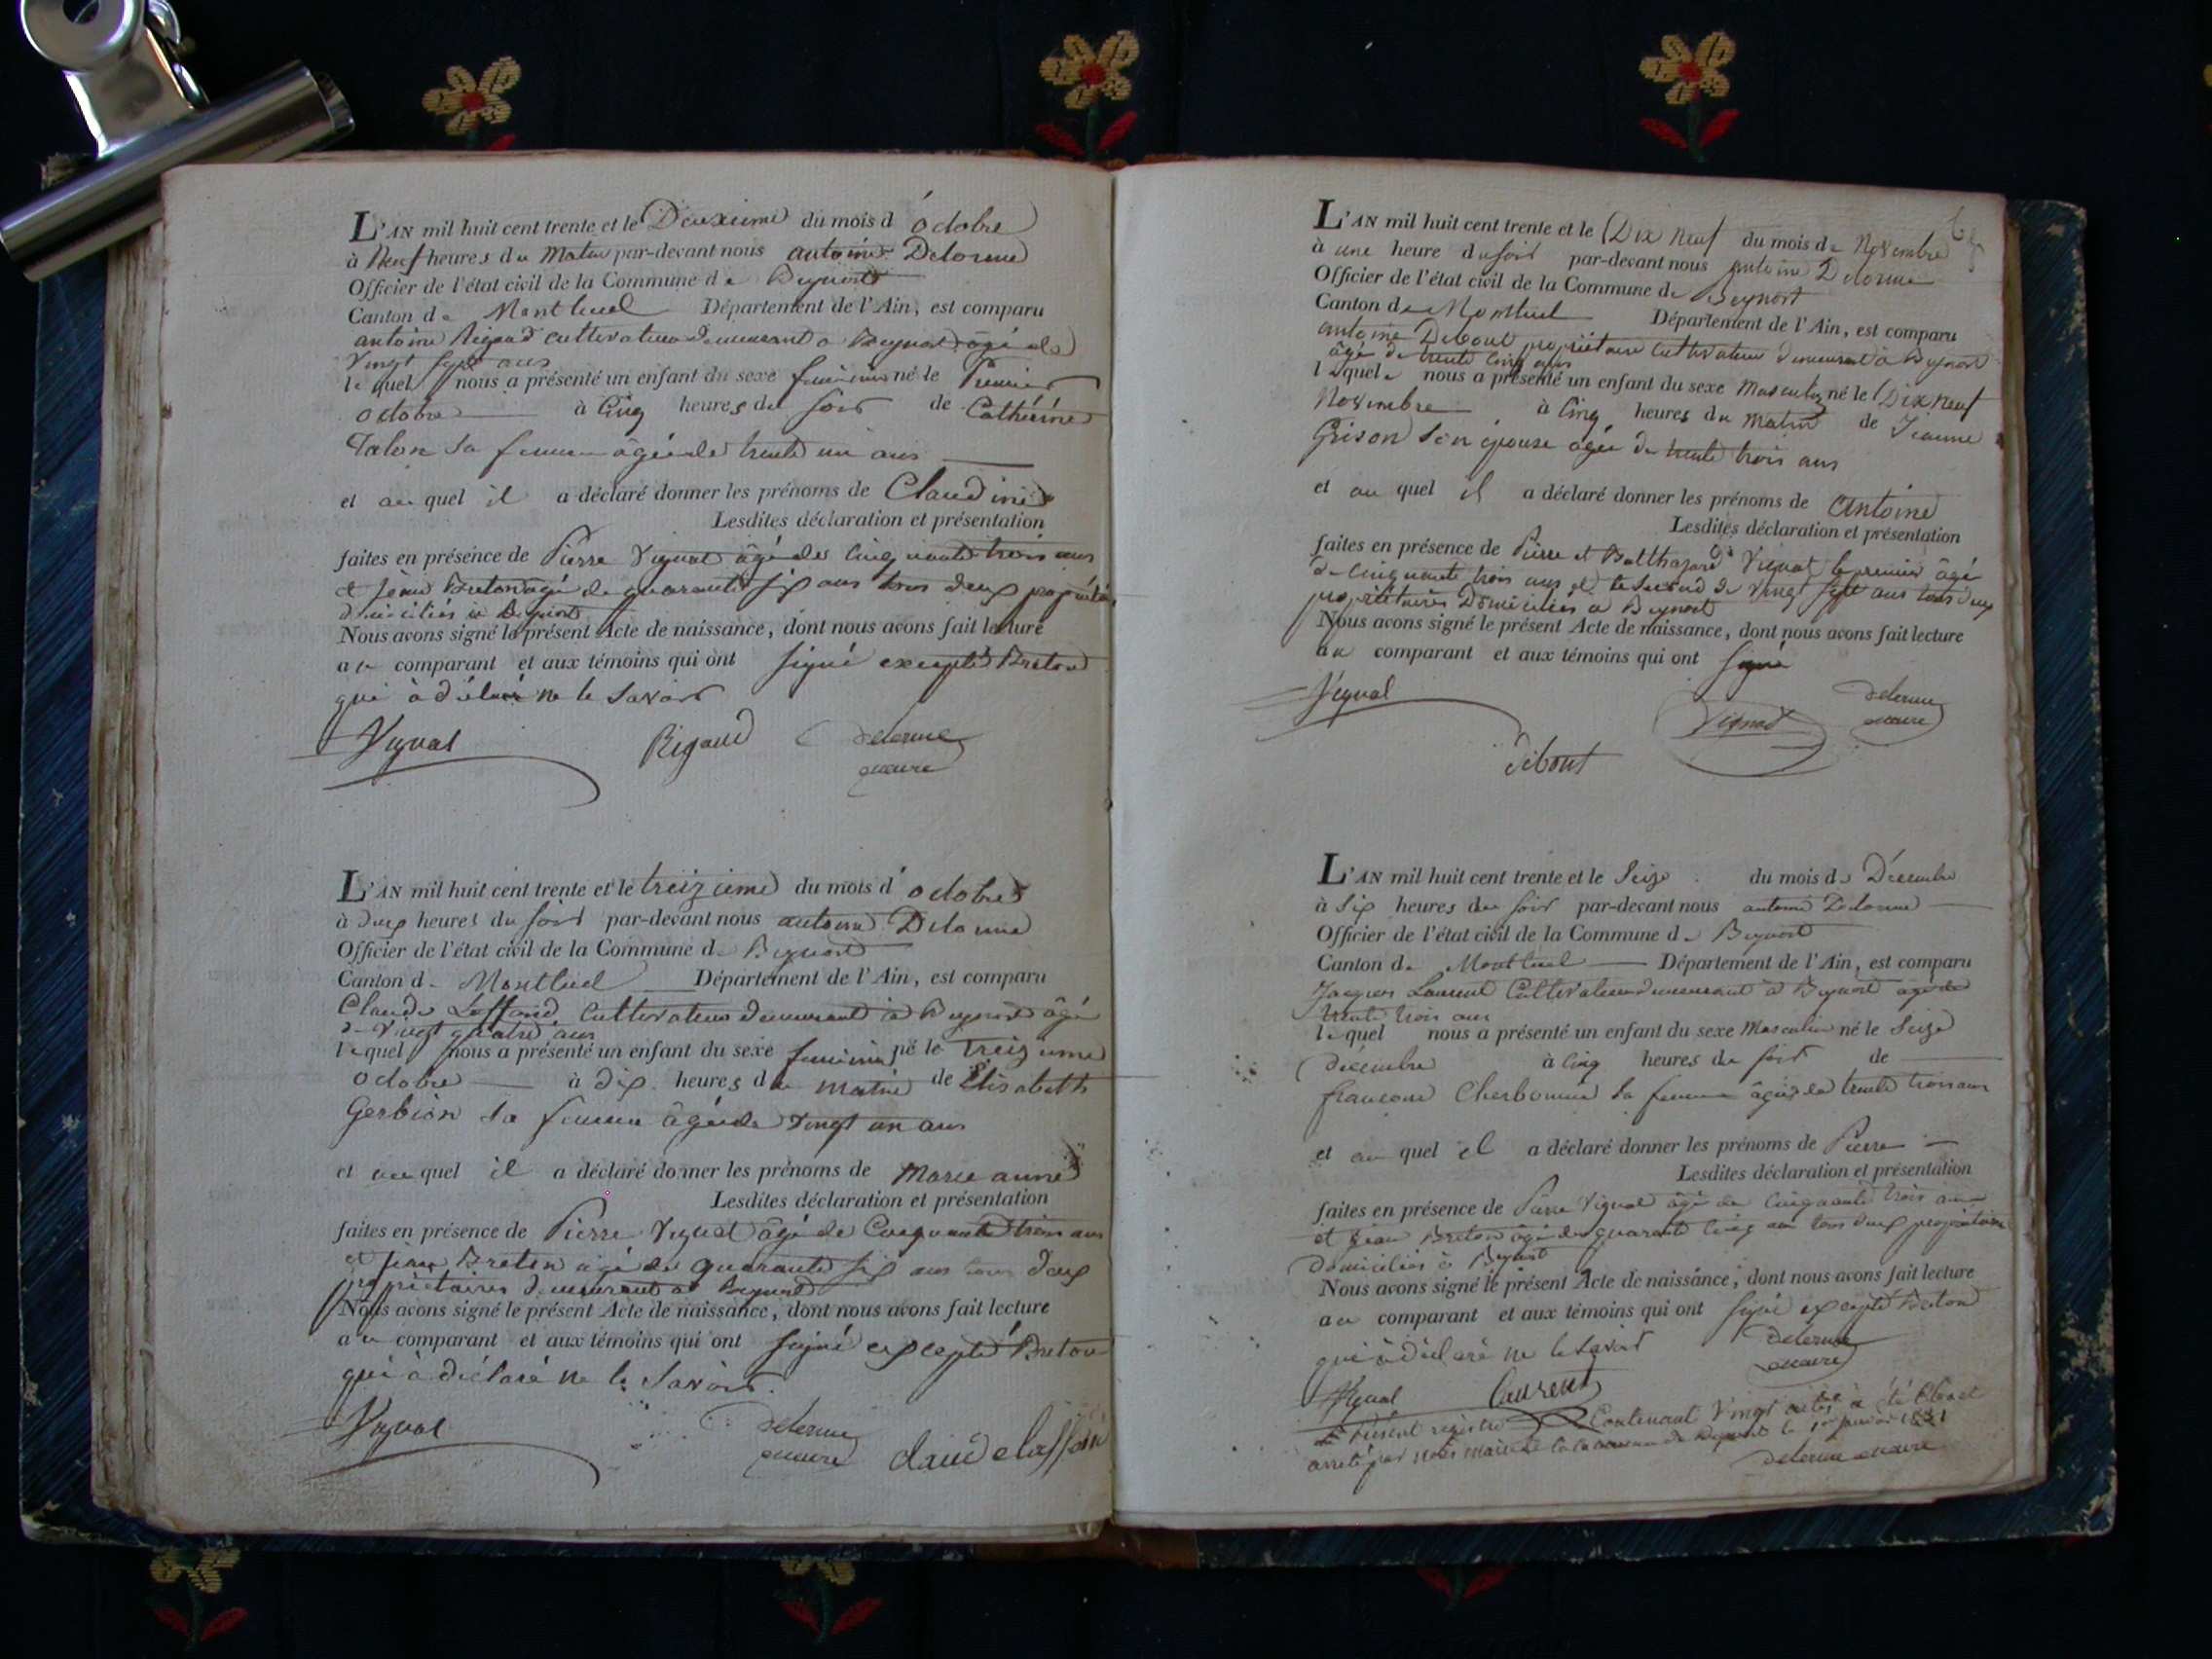 L'AN mil huit cent trente et le Deuxieme du mois d'octobre
à Neuf heures du Matin par-devant nous antoine Delorme
Officier de l'état civil de la Commune de Beynost
Canton de Montluel Département de l'Ain, est comparu
antoine Rigaud cultivateur demeurant a Beynost âgé de
Vingt sept ans
lequel nous a présenté un enfant du sexe feminin né le Premier
octobre à Cinq heures du soir de Cathérine
Talon sa femme âgée de trente un ans
et au quel il a déclaré donner les prénoms de Claudine
Lesdites déclaration et présentation
faites en présence de Pierre Vignat âgé de Cinquante trois ans
et Jean Breton âgé de quarante six ans tous deux propriétaires
domiciliés a Beynost
Nous avons signé le présent Acte de naissance, dont nous avons fait lecture
au comparant et aux témoins qui ont signé excepté Breton
qui à déclaré ne le savoir
Vignat Rigaud delorme
maire
L'AN mil huit cent trente et le treizieme du mois d'octobre
à deux heures du soir par-devant nous antoine Delorme
Officier de l'état civil de la Commune de Beynost
Canton de Montluel Département de l'Ain, est comparu
Claude Laffond Cultivateur demeurant à Beynost âgé
de Vingt quatre ans
lequel nous a présenté un enfant du sexe feminin né le treizieme
octobre à dix heures du matin de Elisabeth
Gerbion sa femme âgée de vingt un ans
et au quel il a déclaré donner les prénoms de Marie anne
Lesdites déclaration et présentation
faites en présence de Pierre Vignat âgé de Cinquante trois ans
et Jean Breton âgé de quarante six ans tous deux
propriétaires demeurant a Beynost
Nous avons signé le présent Acte de naissance, dont nous avons fait lecture
au comparant et aux témoins qui ont signé excepté Breton
qui à déclaré ne le savoir.
Vignat delorme
maire claude laffon
L'AN mil huit cent trente et le Dix neuf du mois de Novembre
à une heure du soir par-devant nous antoine Delorme
Officier de l'état civil de la Commune de Beynost
Canton de Montluel Département de l'Ain, est comparu
antoine Debout propriétaire cultivateur demeurant à Beynost
âgé de trente cinq ans
lequel nous a présenté un enfant du sexe Masculin né le Dix neuf
Novembre à Cinq heures du matin de Jeanne
Grison son épouse âgée de trente trois ans
et au quel il a déclaré donner les prénoms de Antoine
Lesdites déclaration et présentation
faites en présence de Pierre et Balthazard Vignat le premier âgé
de cinquante trois ans et le second de Vingt sept ans tous deux
propriétaires Domiciliés a Beynost
Nous avons signé le présent Acte de naissance, dont nous avons fait lecture
au comparant et aux témoins qui ont signé
Vignat Vignat delorme
maire
debout
L'AN mil huit cent trente et le Seize du mois de Décembre
à six heures du soir par-devant nous antoine Delorme
Officier de l'état civil de la Commune de Beynost
Canton de Montluel Département de l'Ain, est comparu
Jacques Laurent Cultivateur demeurant à Beynost âgé de
trente trois ans
lequel nous a présenté un enfant du sexe Masculin né le Seize
décembre à cinq heures du soir de
francoise Cherbonnier sa femme âgée de trente trois ans
et au quel il a déclaré donner les prénoms de Pierre
Lesdites déclaration et présentation
faites en présence de Pierre Vignat âgé de Cinquante trois ans
et Jean Breton âgé de quarante cinq ans tous deux propriétaires
domiciliés à Beynost
Nous avons signé le présent Acte de naissance, dont nous avons fait lecture
au comparant et aux témoins qui ont signé excepté Breton
qui à déclaré ne le savoir delorme
maire
Vignat Laurent
Le Présent registre Contenant Vingt actes a été Clos et
arrêté par nous maire de la commune de Beynost le 1er janvier 1831
delorme maire